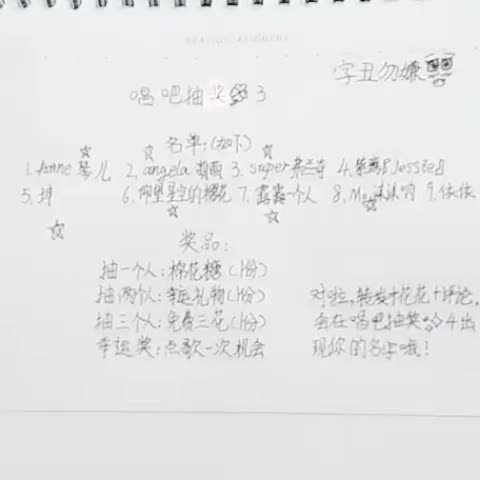 字丑勿嫌
唱吧抽奖 3
名单:(如下)
1. Anne 琴儿 2. angela 萌萌 3. super 4. 8Jessie8
5. 坤 6. 仰望星空的樱花 7. 一个人 8. 9. 依依
奖品:
抽一个人:棉花糖(1份)
抽两个人:幸运礼物(1份)
抽三个人:免费三花(1份)
幸运奖:点歌一次机会
对啦,转发+花花+评论,
会在唱吧抽奖 4出
现你的名字哦!